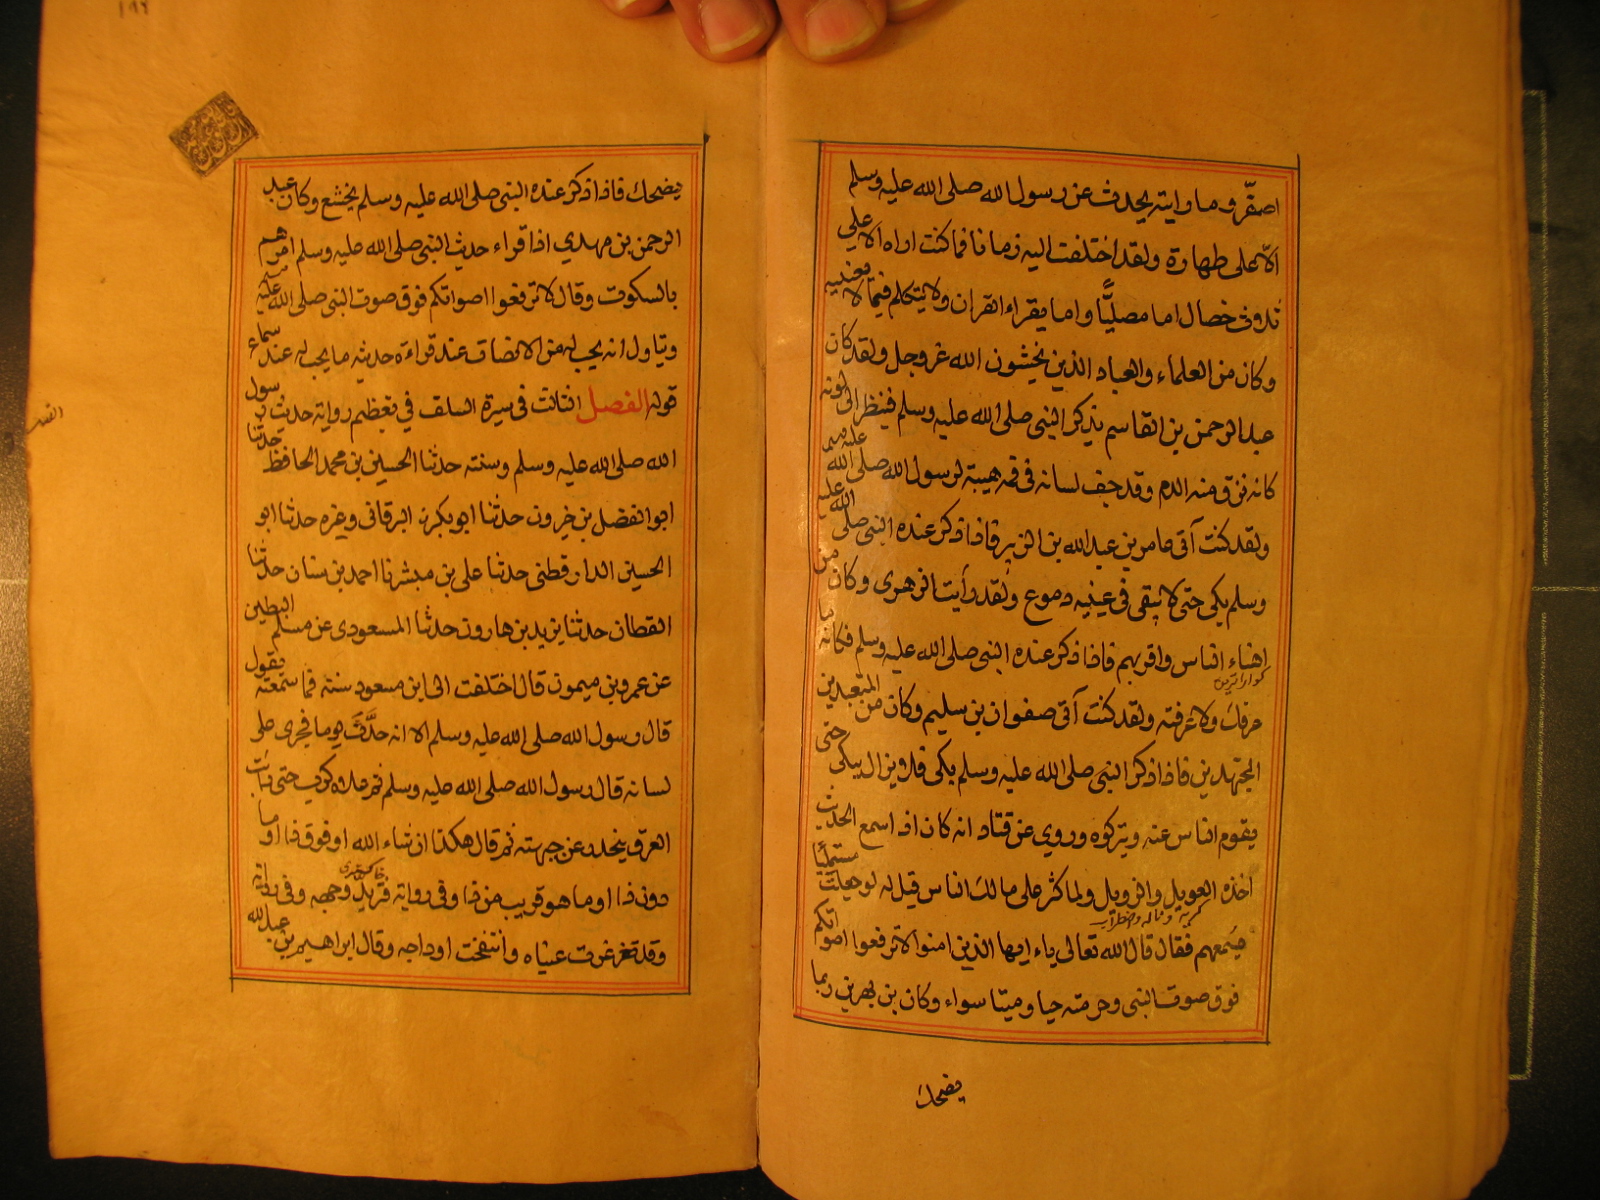 اصفّر وما رايته يحدث عن رسول الله صلى الله عليه وسلم
الا على طهارة ولقد اختلفت اليه زمانا فما كنت اراه الا على
خصال اما مصليًّا واما يقراء القران ولا يتكلم فيما لا يعنيه
وكان من العلماء والعباد الذين يخشون الله عز وجل ولقد كان
عبد الرحمن بن القاسم يذكر النبى صلى الله عليه وسلم فينظر الى لونه
كانه نزق منه الدم وقد جف لسانه فى فمه هيبته لرسول الله صلى الله عليه وسلم
ولقد كنت آتى عامر بن عبد الله بن الزبير فاذا ذكر عنده النبى صلى الله عليه
وسلم بكى حتى لا يبقى فى عينيه دموع ولقد رايت الزهرى وكان من
اهناء الناس واقربهم فاذا ذكر عنده النبى صلى الله عليه وسلم فكانه ما
عرفك ولا عرفته ولقد كنت آتى صفوان بن سليم وكان من المتعبدين
المجتهدين فاذا ذكر النبى صلى الله عليه وسلم بكى فلا يزال يبكى حتى
يقوم الناس عنه ويتركوه وروي عن قتاد انه كان اذا سمع الحديث
اخذه العويل والزويل ولما كثر على مالك الناس قيل له لو جعلت مستمليًا
يسمعهم فقال قال الله تعالى ياء ايها الذين امنوا لا ترفعوا اصواتكم
فوق صوت النبى وحرمته حيا وميتا سواء وكان بن سيرين ربما
يضحك
١٩٤
يضحك فاذا ذكر عنده النبى صلى الله عليه وسلم يخشع وكان عبد
الرحمن بن مهدي اذا قراء حديث النبى صلى الله عليه وسلم امرهم
بالسكوت وقال لا ترفعوا اصواتكم فوق صوت النبى صلى الله عليه وسلم
ويتاول انه يجب له من الانصات عند قراءة حديثه ما يجب له عند سماع
قوله الفصل الثالث فى سيرة السلف في تعظيم رواية حديث رسول
الله صلى الله عليه وسلم وسنته حدثنا الحسين بن محمد الحافظ حدثنا
ابو الفضل بن خيرون حدثنا ابو بكر البرقانى وغيره حدثنا ابو
الحسين الدارقطنى حدثنا على بن مبشرنا احمد بن سنان حدثنا
القطان حدثنا يزيد بن هارون حدثنا المسعودى عن مسلم البطين
عن عمرو بن ميمون قال اختلفت الى ابن مسعود سنة فما سمعته يقول
قال رسول الله صلى الله عليه وسلم الا انه حدَّث يوما فجرى على
لسانه قال رسول الله صلى الله عليه وسلم ثم علاه كرب حتى رايت
العرق يتحدر عن جبهته ثم قال هكذا ان شاء الله او فوق ذا او ما
دون ذا او ما هو قريب من ذا وفى رواية فتربد وجهه وفى رواية
وقد تغرغرت عيناه وانتفخت اوداجه وقال ابراهيم بن عبد الله